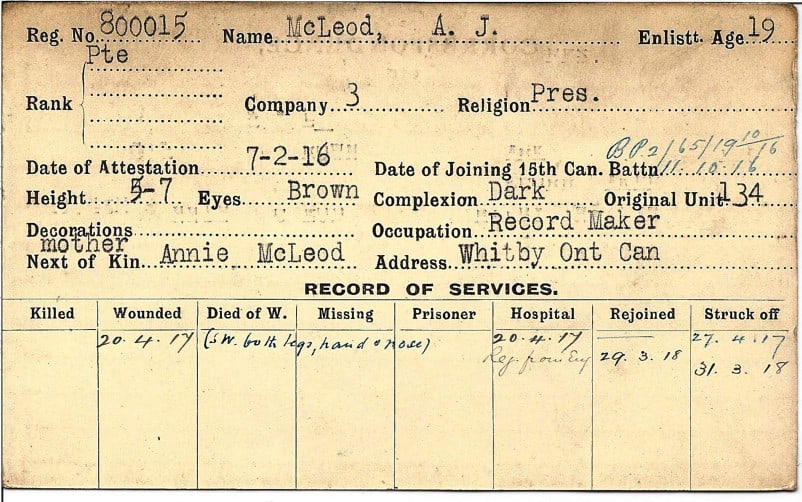 Reg. No. 800015 Name McLeod, A. J. Enlistt. Age 19
Pte
Rank Company 3 Religion Pres.
B.P. 2/65/19 10/16
Date of Attestation 7-2-16 Date of Joining 15th Can. Battn. 11.10.16
Height 5-7 Eyes Brown Complexion Dark Original Unit 134
Decorations Occupation Record Maker
mother
Next of Kin Annie McLeod Address Whitby Ont Can
RECORD OF SERVICES.
Killed Wounded Died of W. Missing Prisoner Hospital Rejoined Struck off
20.4.17 (SW. both legs, hand & nose) 20.4.17 27.4.17
Reg. from Eng 29.3.18
31.3.18